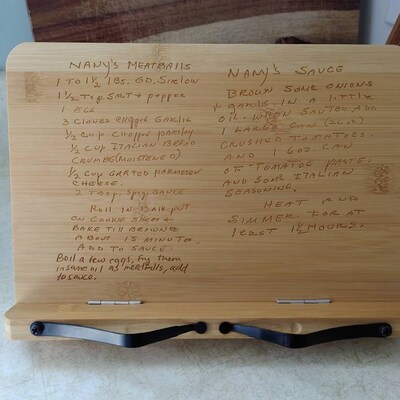 NANY'S MEATBALLS
1 TO 1½ LBS. GD. SIRLOIN
1½ Tsp. SALT + pepper
1 EGG
3 CLOVES CHOPPED GARLIC
½ Cup Chopped parsley
½ Cup ITALIAN BREAD
CRUMBS (MOISTENED)
½ cup GRATED PARMESAN
CHEESE.
2 Tbsp. SAUCE
ROLL IN BALL, PUT
ON COOKIE SHEET +
BAKE TILL BROWNED
ABOUT 15 MINUTES.
ADD TO SAUCE.
Boil a few eggs, fry them
in same oil as meatballs, add
to sauce.
NANY'S SAUCE
BROWN SOME ONIONS
+ GARLIC IN A LITTLE
OIL. WHEN SAUTEED ADD
1 LARGE CAN
CRUSHED TOMATOES.
AND 1 6 OZ CAN
OF TOMATOE PASTE.
AND SOME ITALIAN
SEASONING.
HEAT AND
SIMMER FOR AT
LEAST 1½ HOURS.